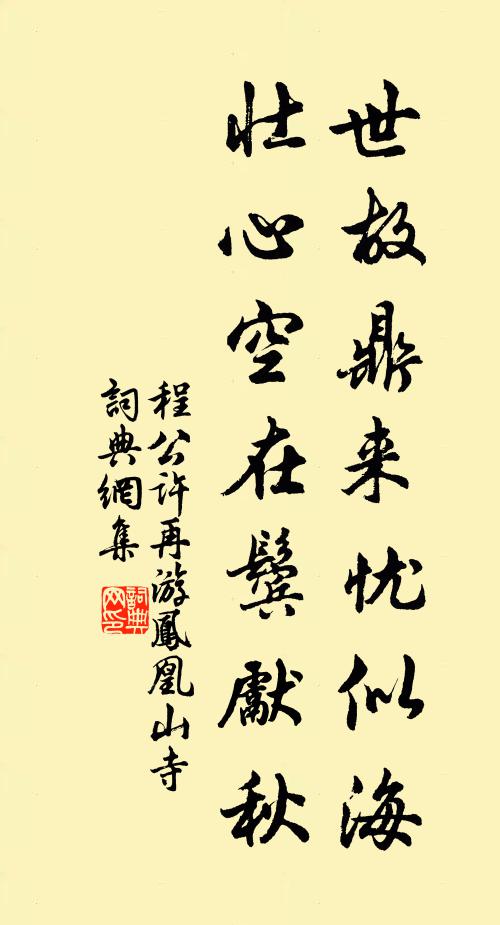 世故鼎来忧似海
壮心空在鬓獻秋
程公许再游鳳凰山寺
詞典網集
詞典网印